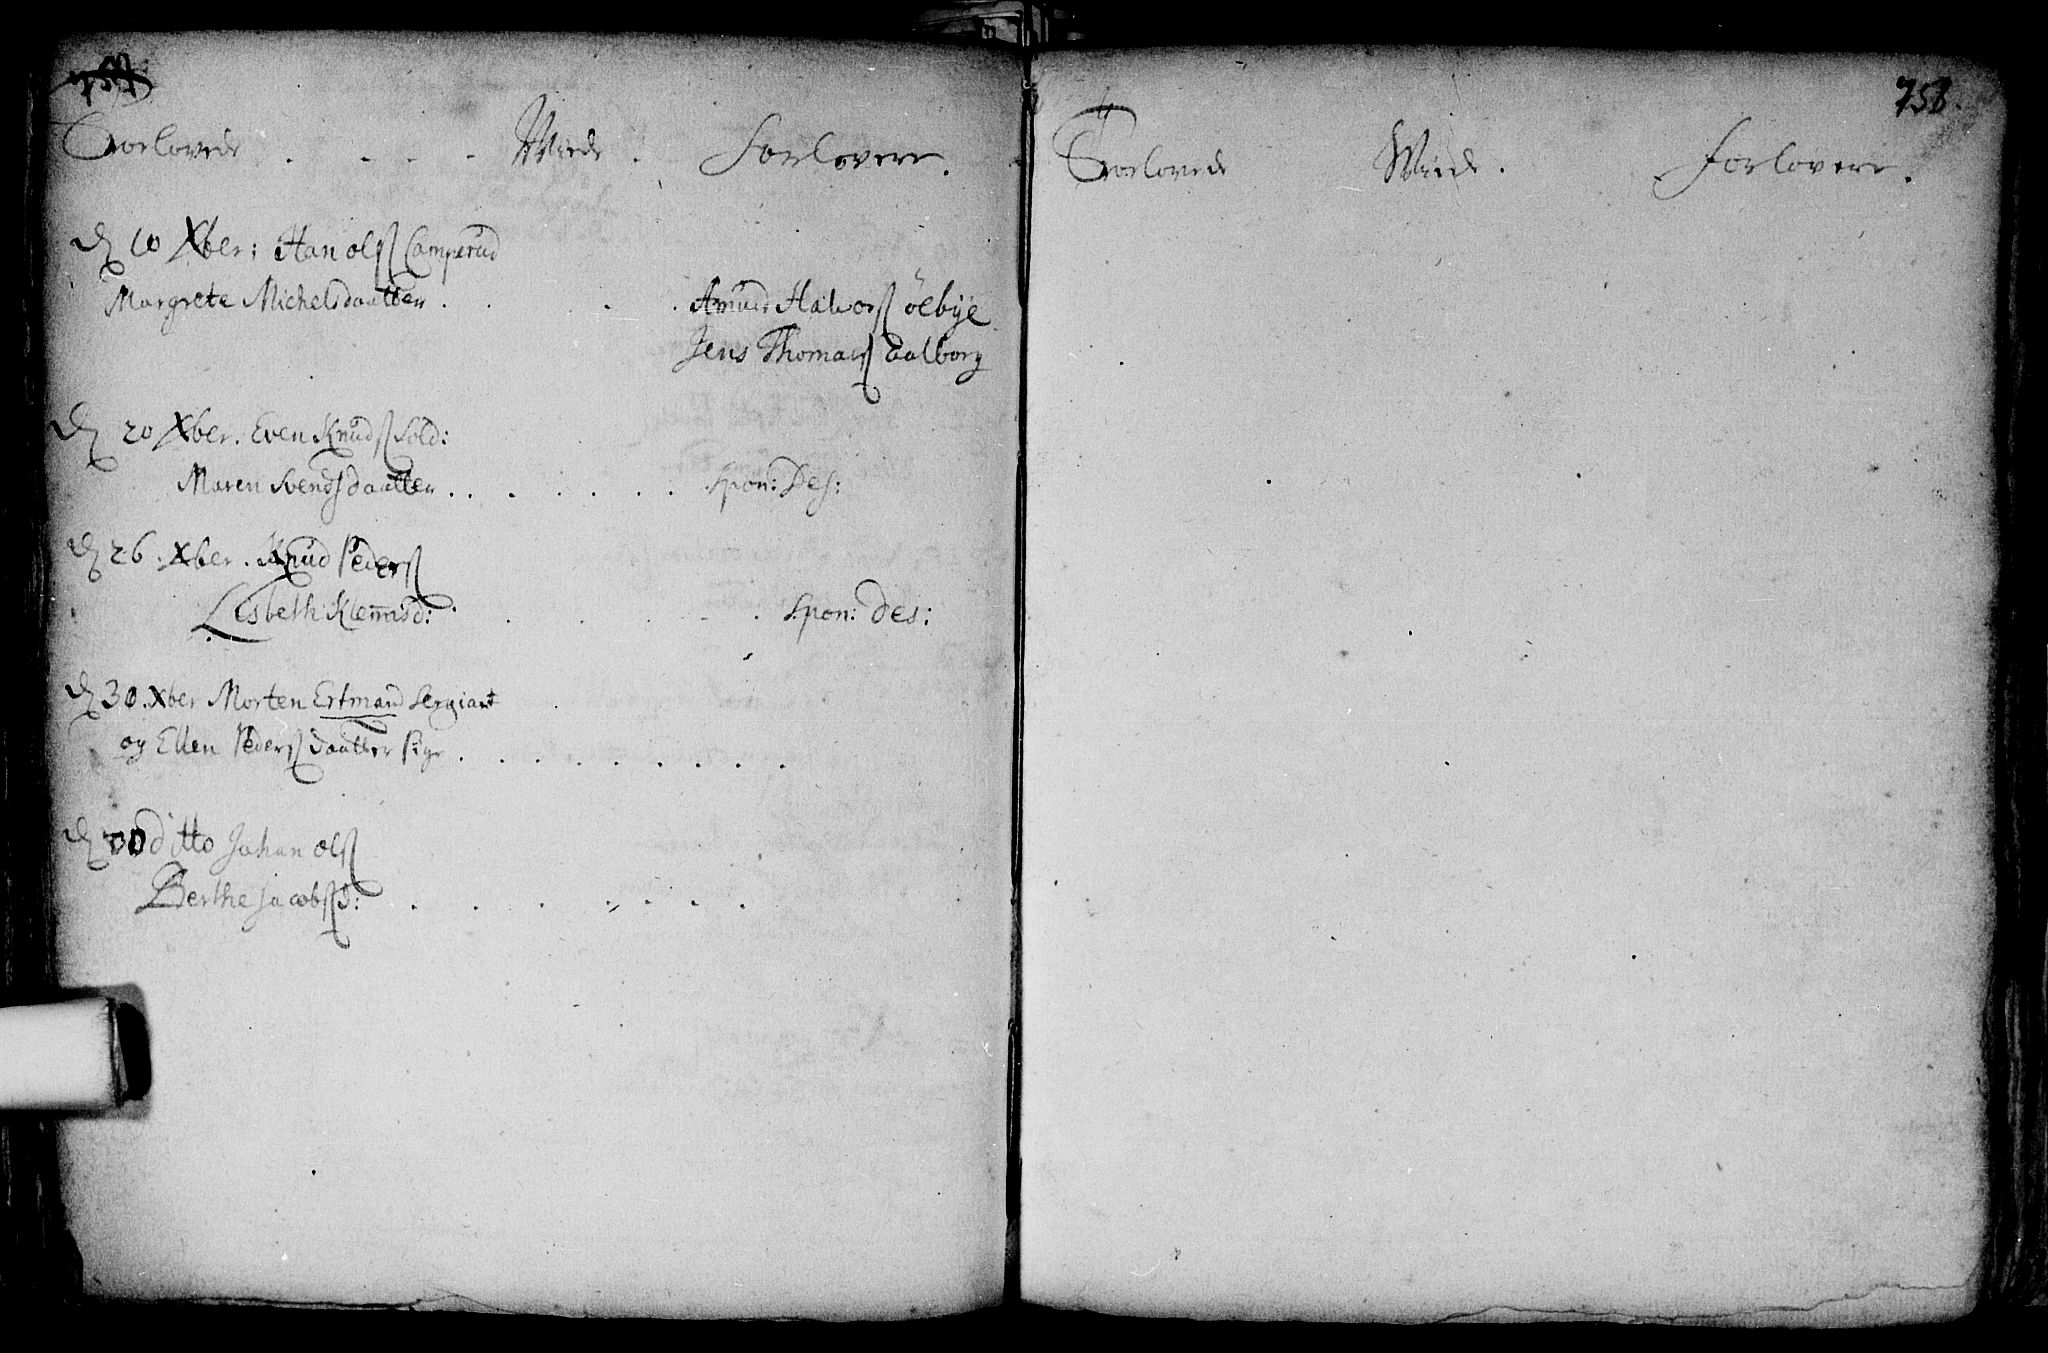 757
Trorlovede . . . . Wiede . Forlovere .
d 10 Xber: Han olß Camperud
Margrete Michelsdaatter . . . . Amund Halvorß ölbye
Jens Thomaß Aalborg
d 20 Xber. Even Knudß Sold:
Maren Svendsdaatter . . . . . . . Spon: Des:
d 26. Xber. Knud Pederß
Lisbeth Klemisd: . . . . . Spon: Des:
d 30. Xber Morten Ertmand Sergiant
og Ellen Pederß daatter . . . . . . . . .
d ditto Johan olß
Berthe Jacobsd: . . . . . . . .
758.
Trorlovede Wiede . forlovere .